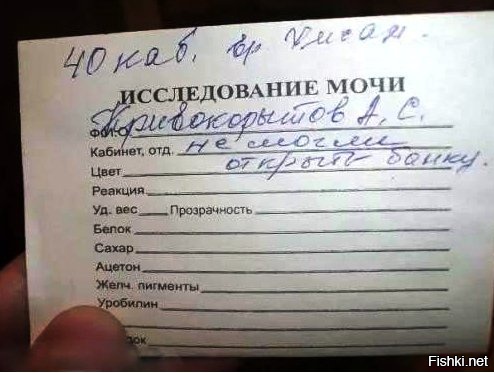 40 каб. вр
ИССЛЕДОВАНИЕ МОЧИ
Ф.И.О. Кривокорытов А. С.
Кабинет, отд. не могли
Цвет открыть банку.
Реакция
Уд. вес Прозрачность
Белок
Сахар
Ацетон
Желч. пигменты
Уробилин
Fishki.net